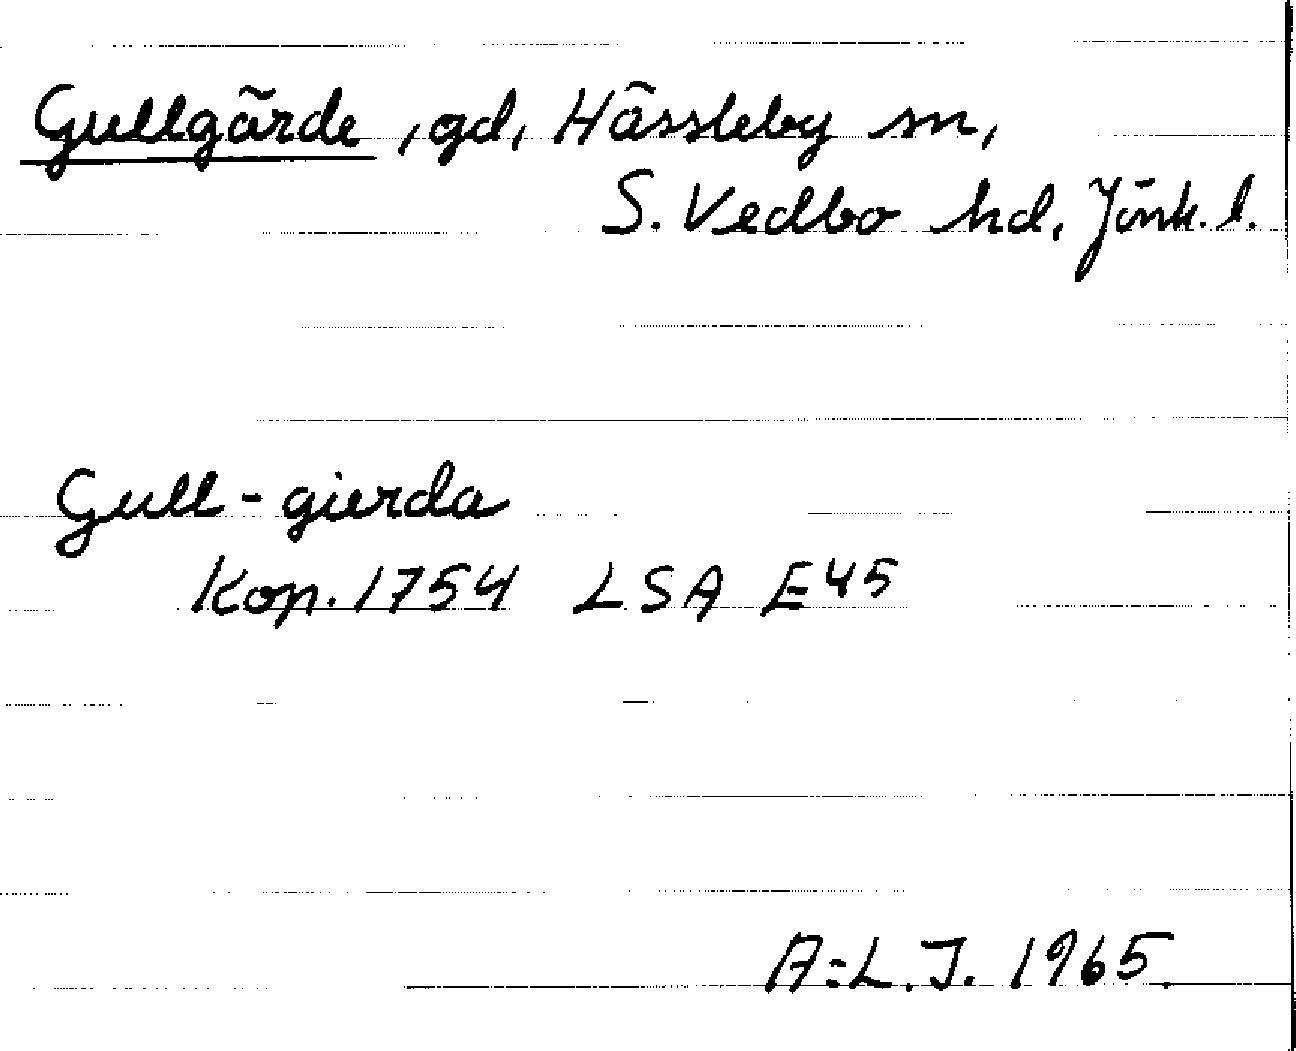 Gullgärde, gd, Hässleby sn,
S. Vedbo hd, Jönk. l.
Gull-gierda
Kop. 1754 LSA E45
A-L.J. 1965.